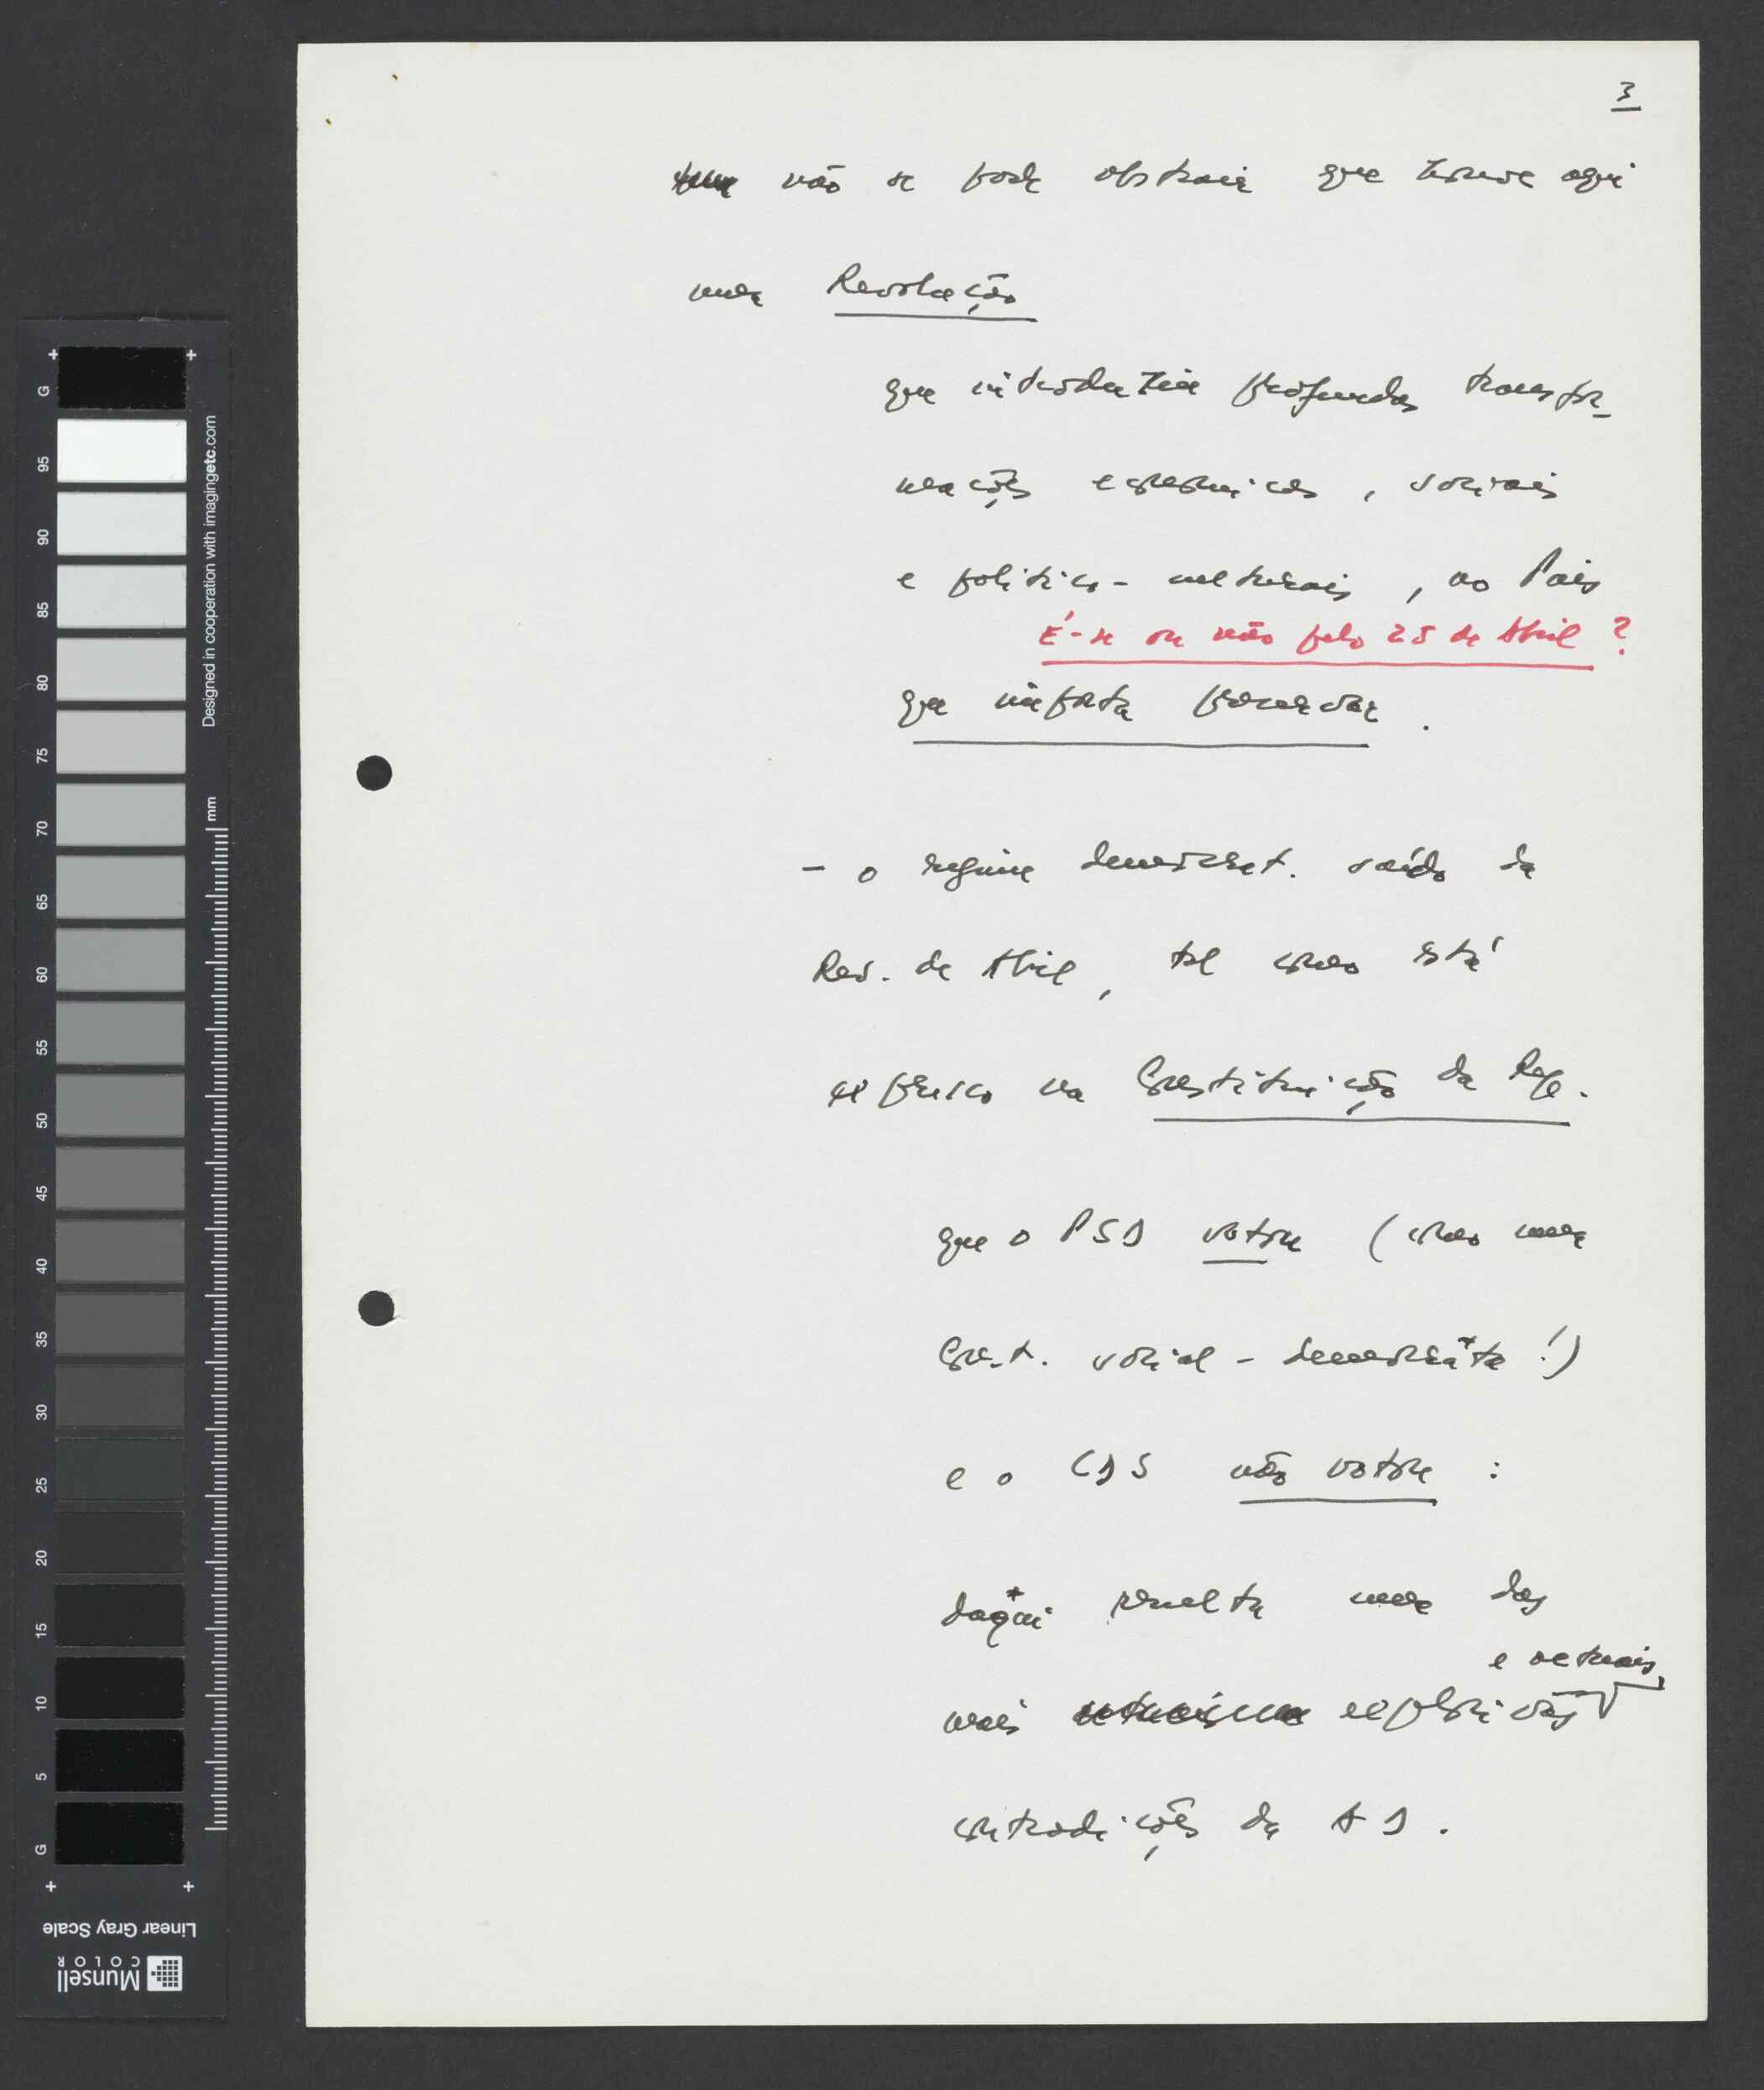 3
não se pode abstrair que houve aqui
uma Revolução
que introduziu profundas transfor-
mações económicas, sociais
e politico-culturais, no País
É-se ou não pelo 25 de Abril?
que importa preservar.
- o regime democrat. saído da
Rev. de Abril, tal como está
expresso na Constituição da Rep.
que o PSD votou (como uma
Const. social-democráta!)
e o CDS não votou:
daqui resulta uma das
e actuais
mais explosivas
contradições da AD.
G
95
90
85
80
75
70
65
60
55
50
45
40
35
30
25
20
15
10
5
G
Designed in cooperation with imagingetc.com
mm
Linear Gray Scale
Munsell
COLOR